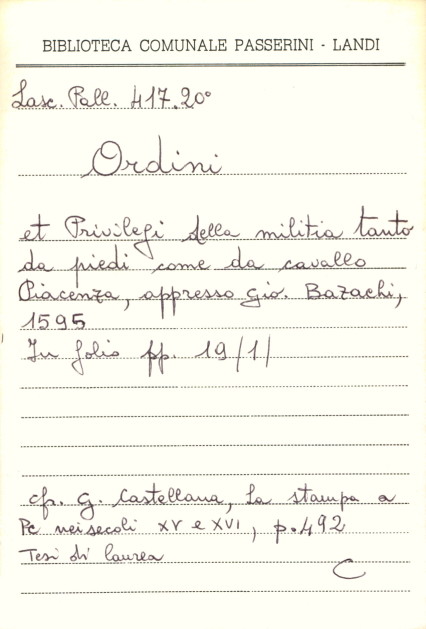 BIBLIOTECA COMUNALE PASSERINI - LANDI
Lasc. Pall. 417.20°
Ordini
et Privilegi della militia tanto
da piedi come da cavallo
Piacenza, appresso Gio. Bazachi,
1595
In folio pp. 19/1/
cfr. G. Castellana, La stampa a
Pc nei secoli XV e XVI, p. 492
Tesi di laurea
C